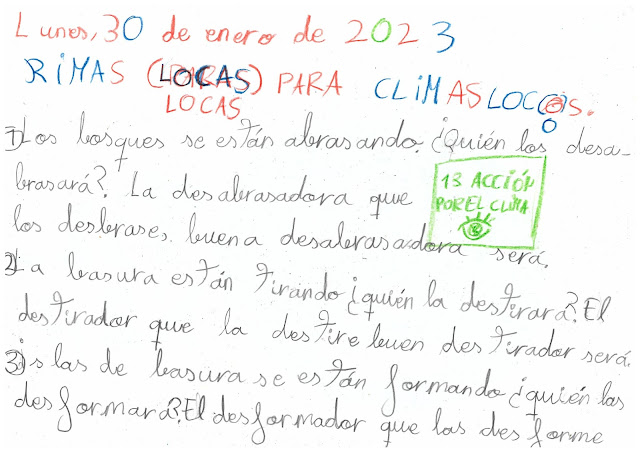 Lunes, 30 de enero de 2023
RiMAS (LOCAS) PARA CLiMAS LOCOS.
LOCAS
1) Los bosques se están abrasando. ¿Quién los desa-
brasará? La desabrasadora que
los desbrase, buena desabrasadora será.
13 ACCIÓN
POR EL CLIMA
2) La basura están tirando ¿quién la destirará? El
destirador que la destire buen destirador será.
3) islas de basura se están formando ¿quién las
desformará? El desformador que las desforme